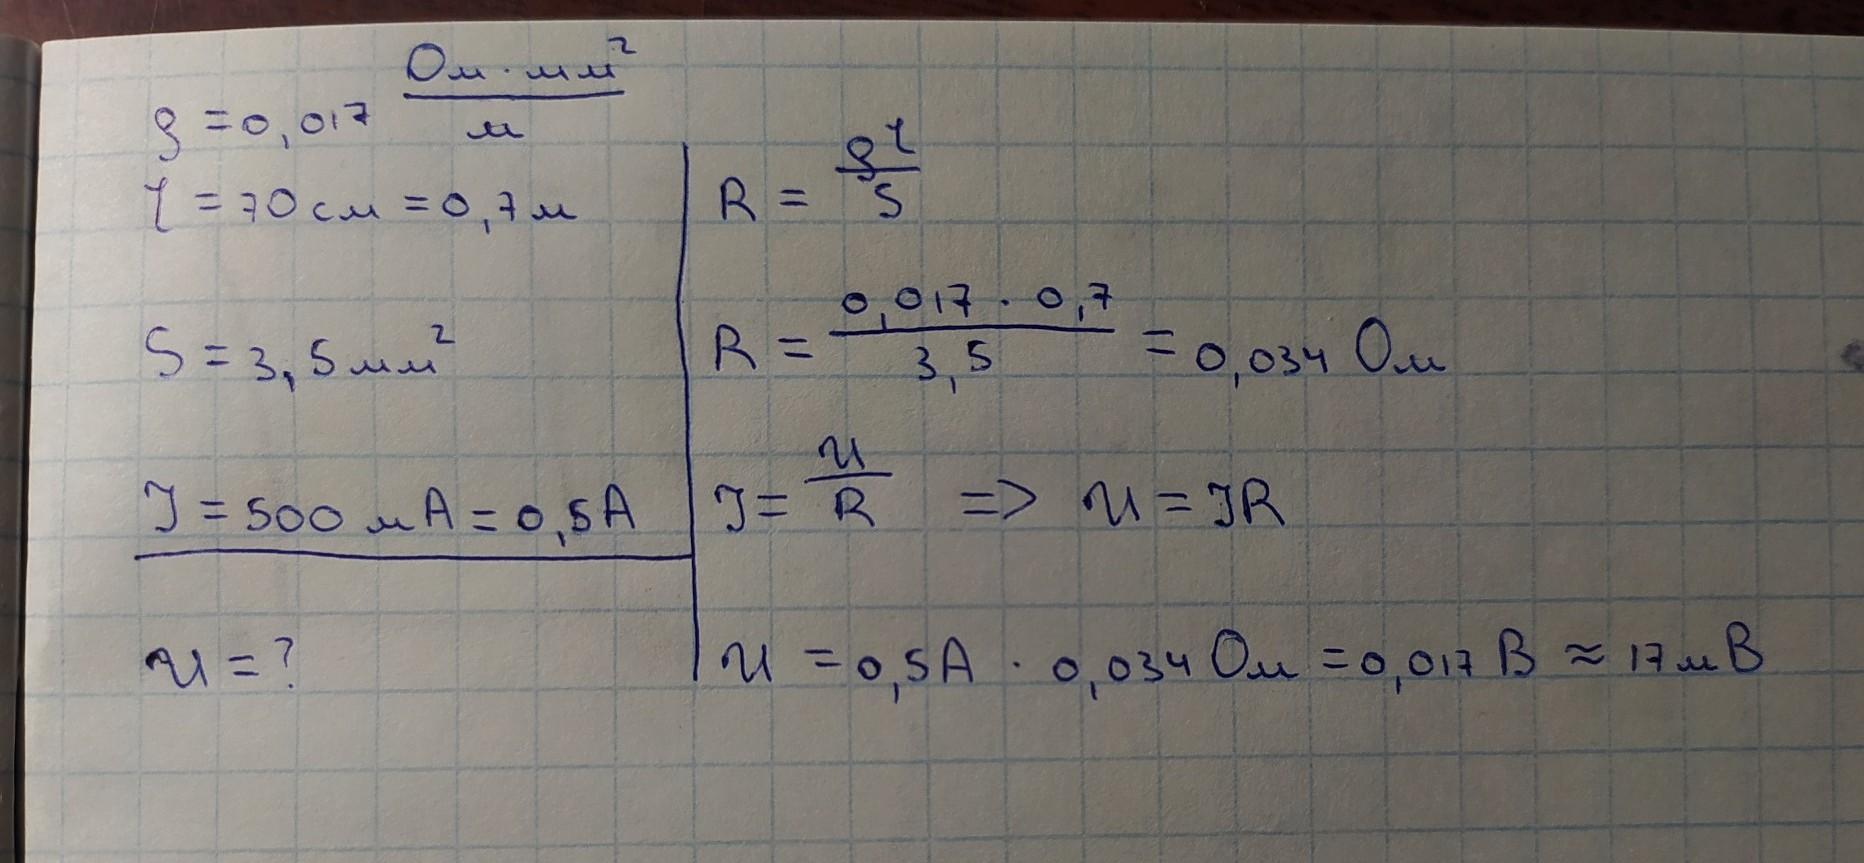 ρ = 0,017 Ом·мм²/м
l = 70 см = 0,7 м
S = 3,5 мм²
I = 500 мА = 0,5А
U = ?
R = ρl/S
R = 0,017 · 0,7/3,5 = 0,034 Ом
I = U/R => U = IR
U = 0,5А · 0,034 Ом = 0,017 В ≈ 17 мВ